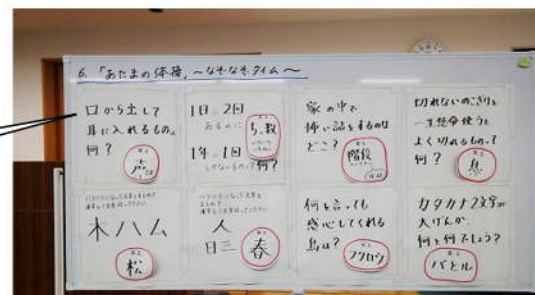 6. 「あたまの体操」~なぞなぞタイム~
口から出して
耳に入れるもの。
何?
答え
声
1日に2回
あるのに
1年に1回
しかないものって何?
家の中で
怖い話をするのは
どこ?
階段
切れないのこぎりを
一生懸命使うと
よく切れるものって
何?
息
木ハム
松
人
日三
春
何を言っても
感心してくれる
鳥は?
フクロウ
カタカナ2文字が
大げんか。
何と何でしょう?
バとル